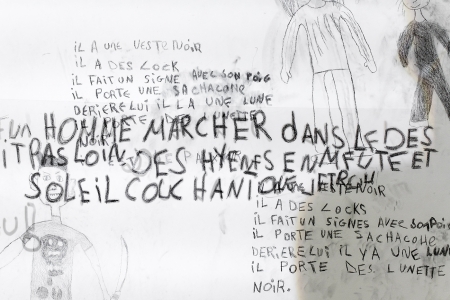 iL A UNE VESTE NOIR
iL A DES LOCK
iL FAIT UN SIGNE AVEC SON POIG
iL PORTE UNE SACHACOHE
DERIERE LUI iL LA UNE LUNE
PORTE DES LUNETTE
NOIR.
UN HOMME MARCHER dANS LE DES
PAS LOIN DES HYENES EN MEUTE ET
SOLEIL COUCHANT
UNE VESTE NOIR
iL A DES LOCKS
iL FAIT UN SIGNES AVEC SON POiG
iL PORTE UNE SACHACOHE
DERIERE LUI iL Y A UNE LUNE
iL PORTE DES LUNETTE
NOIR.